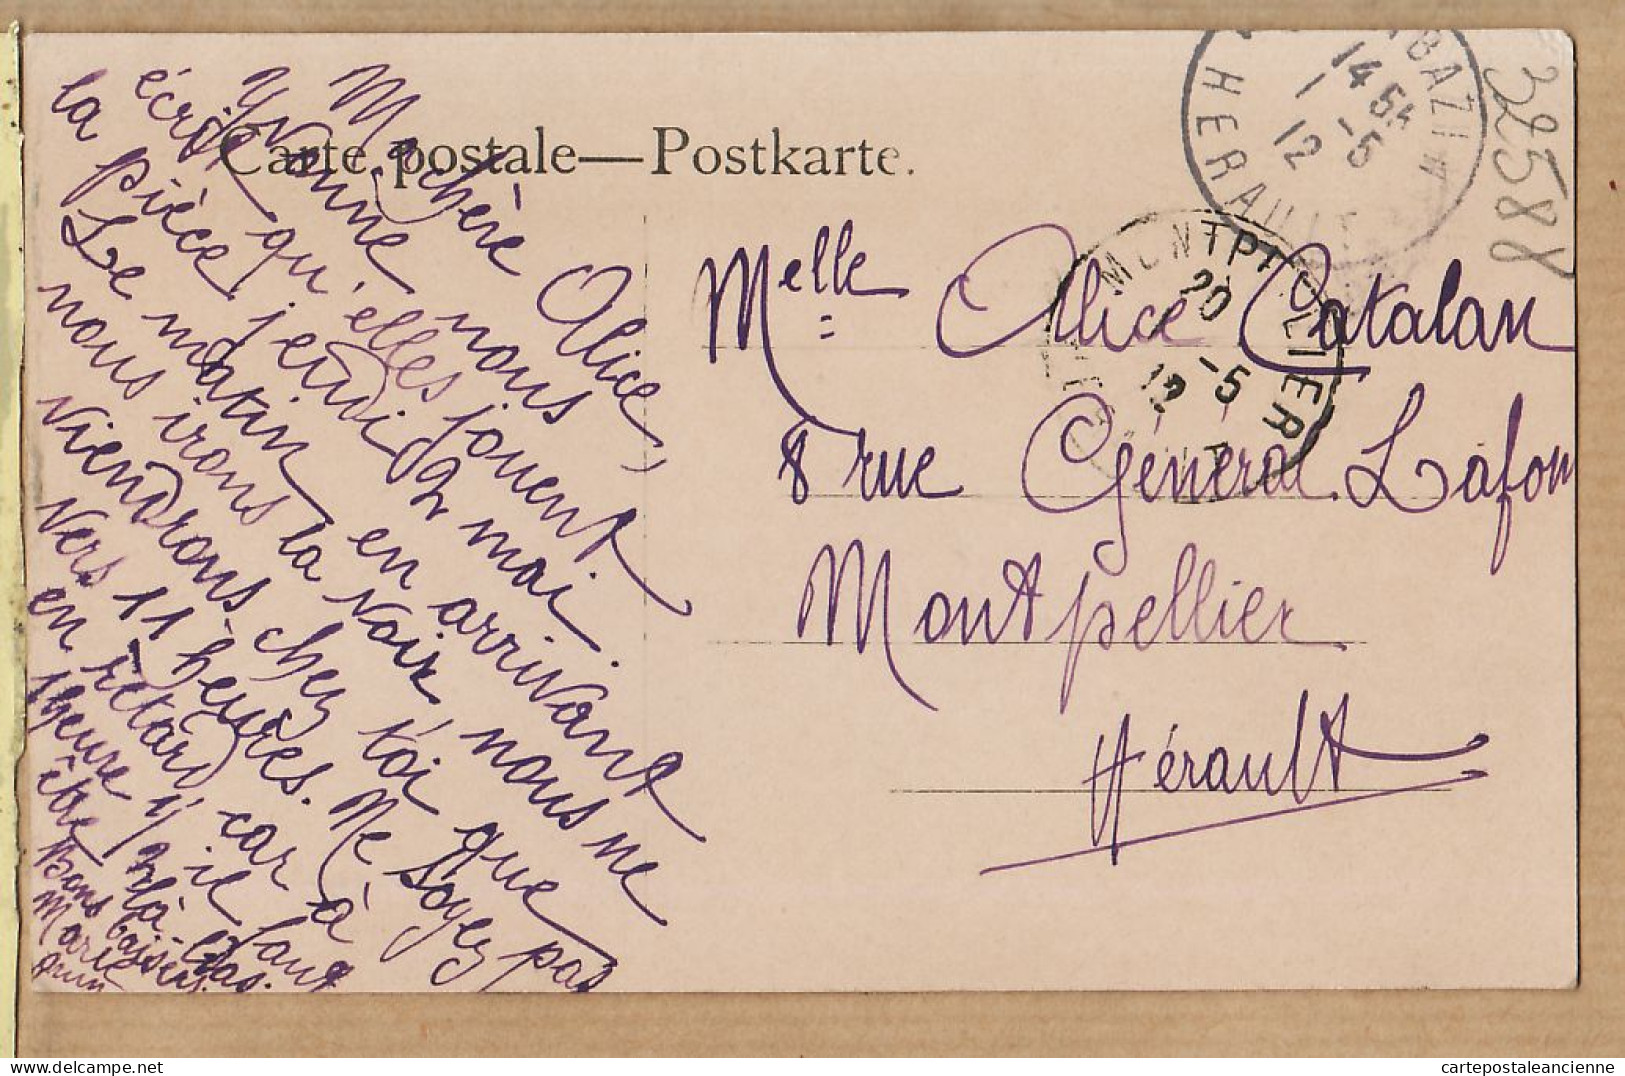 Carte postale—Postkarte.
Ma chère Alice,
Yvonne nous
écrit qu'elles jouent
la pièce jeudi 2 mai.
Le matin en arrivant
nous irons la voir, nous ne
viendrons chez toi que
vers 11 heures. Ne soyez pas
en retard car à
1 heure ½ il faut
être là-bas.
Bons baisers.
Marie
Melle Alice Catalan
8 rue Général Lafon
Montpellier
Hérault
BAZI
14 5A
1 -5
12
HERAULT
MONTPELLIER
20
1 -5
12
32588
cartepostaleancienne